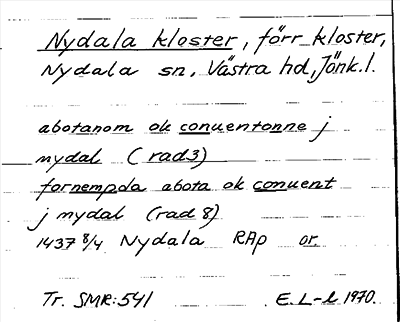 Nydala kloster, förr kloster,
Nydala sn, Västra hd, Jönk.l.
abotanom ok conuentonne j
nydal (rad3)
fornempda abota ok conuent
j nydal (rad 8)
1437 8/4 Nydala RAp or.
Tr. SMR:541 E. L-l 1970.